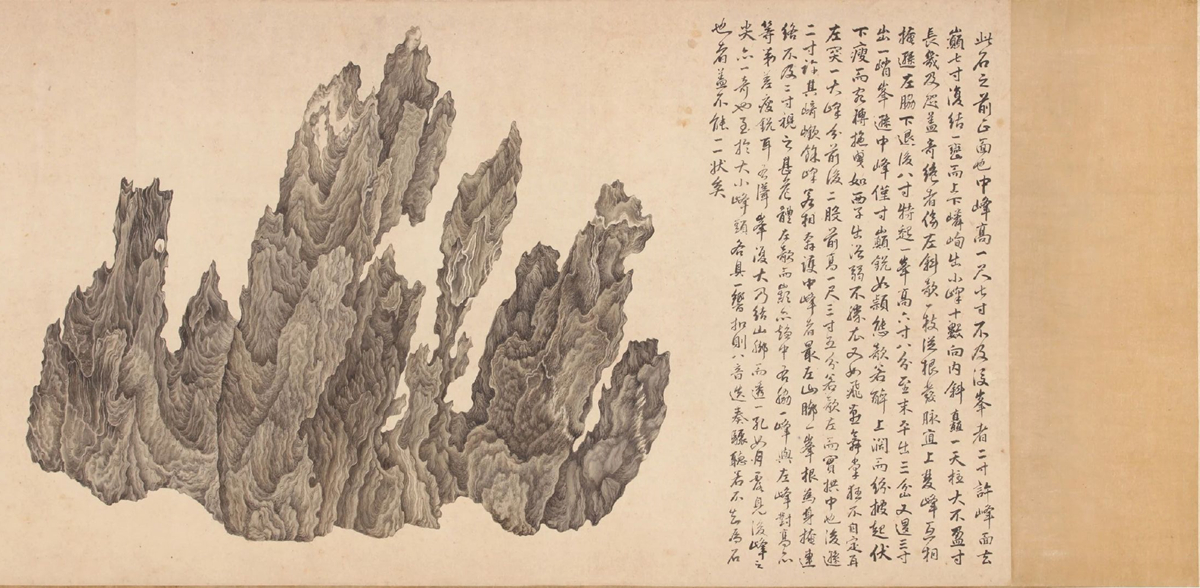 此石之前正面也中峰高一尺七寸不及後峯者二寸許峰面去
巔七寸復結一巒而上下嶙峋出小峰十數向內斜矗一天柱大不盈寸
長幾及咫蓋奇絕者傍左斜欹一枝從根發脉直上與峰互相
掩遜左脇下退後八寸特起一峯高六寸八分至末平出三分又邊三寸
出一峭峯遜中峰僅寸巔銳如穎態欹若醉上濶而紛披起伏
下瘦而宛轉拖曳如西子出浴弱不勝衣又如飛燕舞掌狂不自定耳
左突一大峰分前後二股前高一尺三寸五分若欹左而實拱中也後遜
二寸許其崎嶔餘峰若相奔護中峰者最左山脚一峯根為身掩連
絡不及二寸視之甚危體左欹而巔亦趨中右脇一峰與左峰對高亦
等弟差瘦銳耳右峯後大乃結山脚而透一孔如月露見後峰之
尖亦一奇也至於大小峰頭各具一響扣則八音迭奏聽者不知為石
也者蓋不能一一狀矣